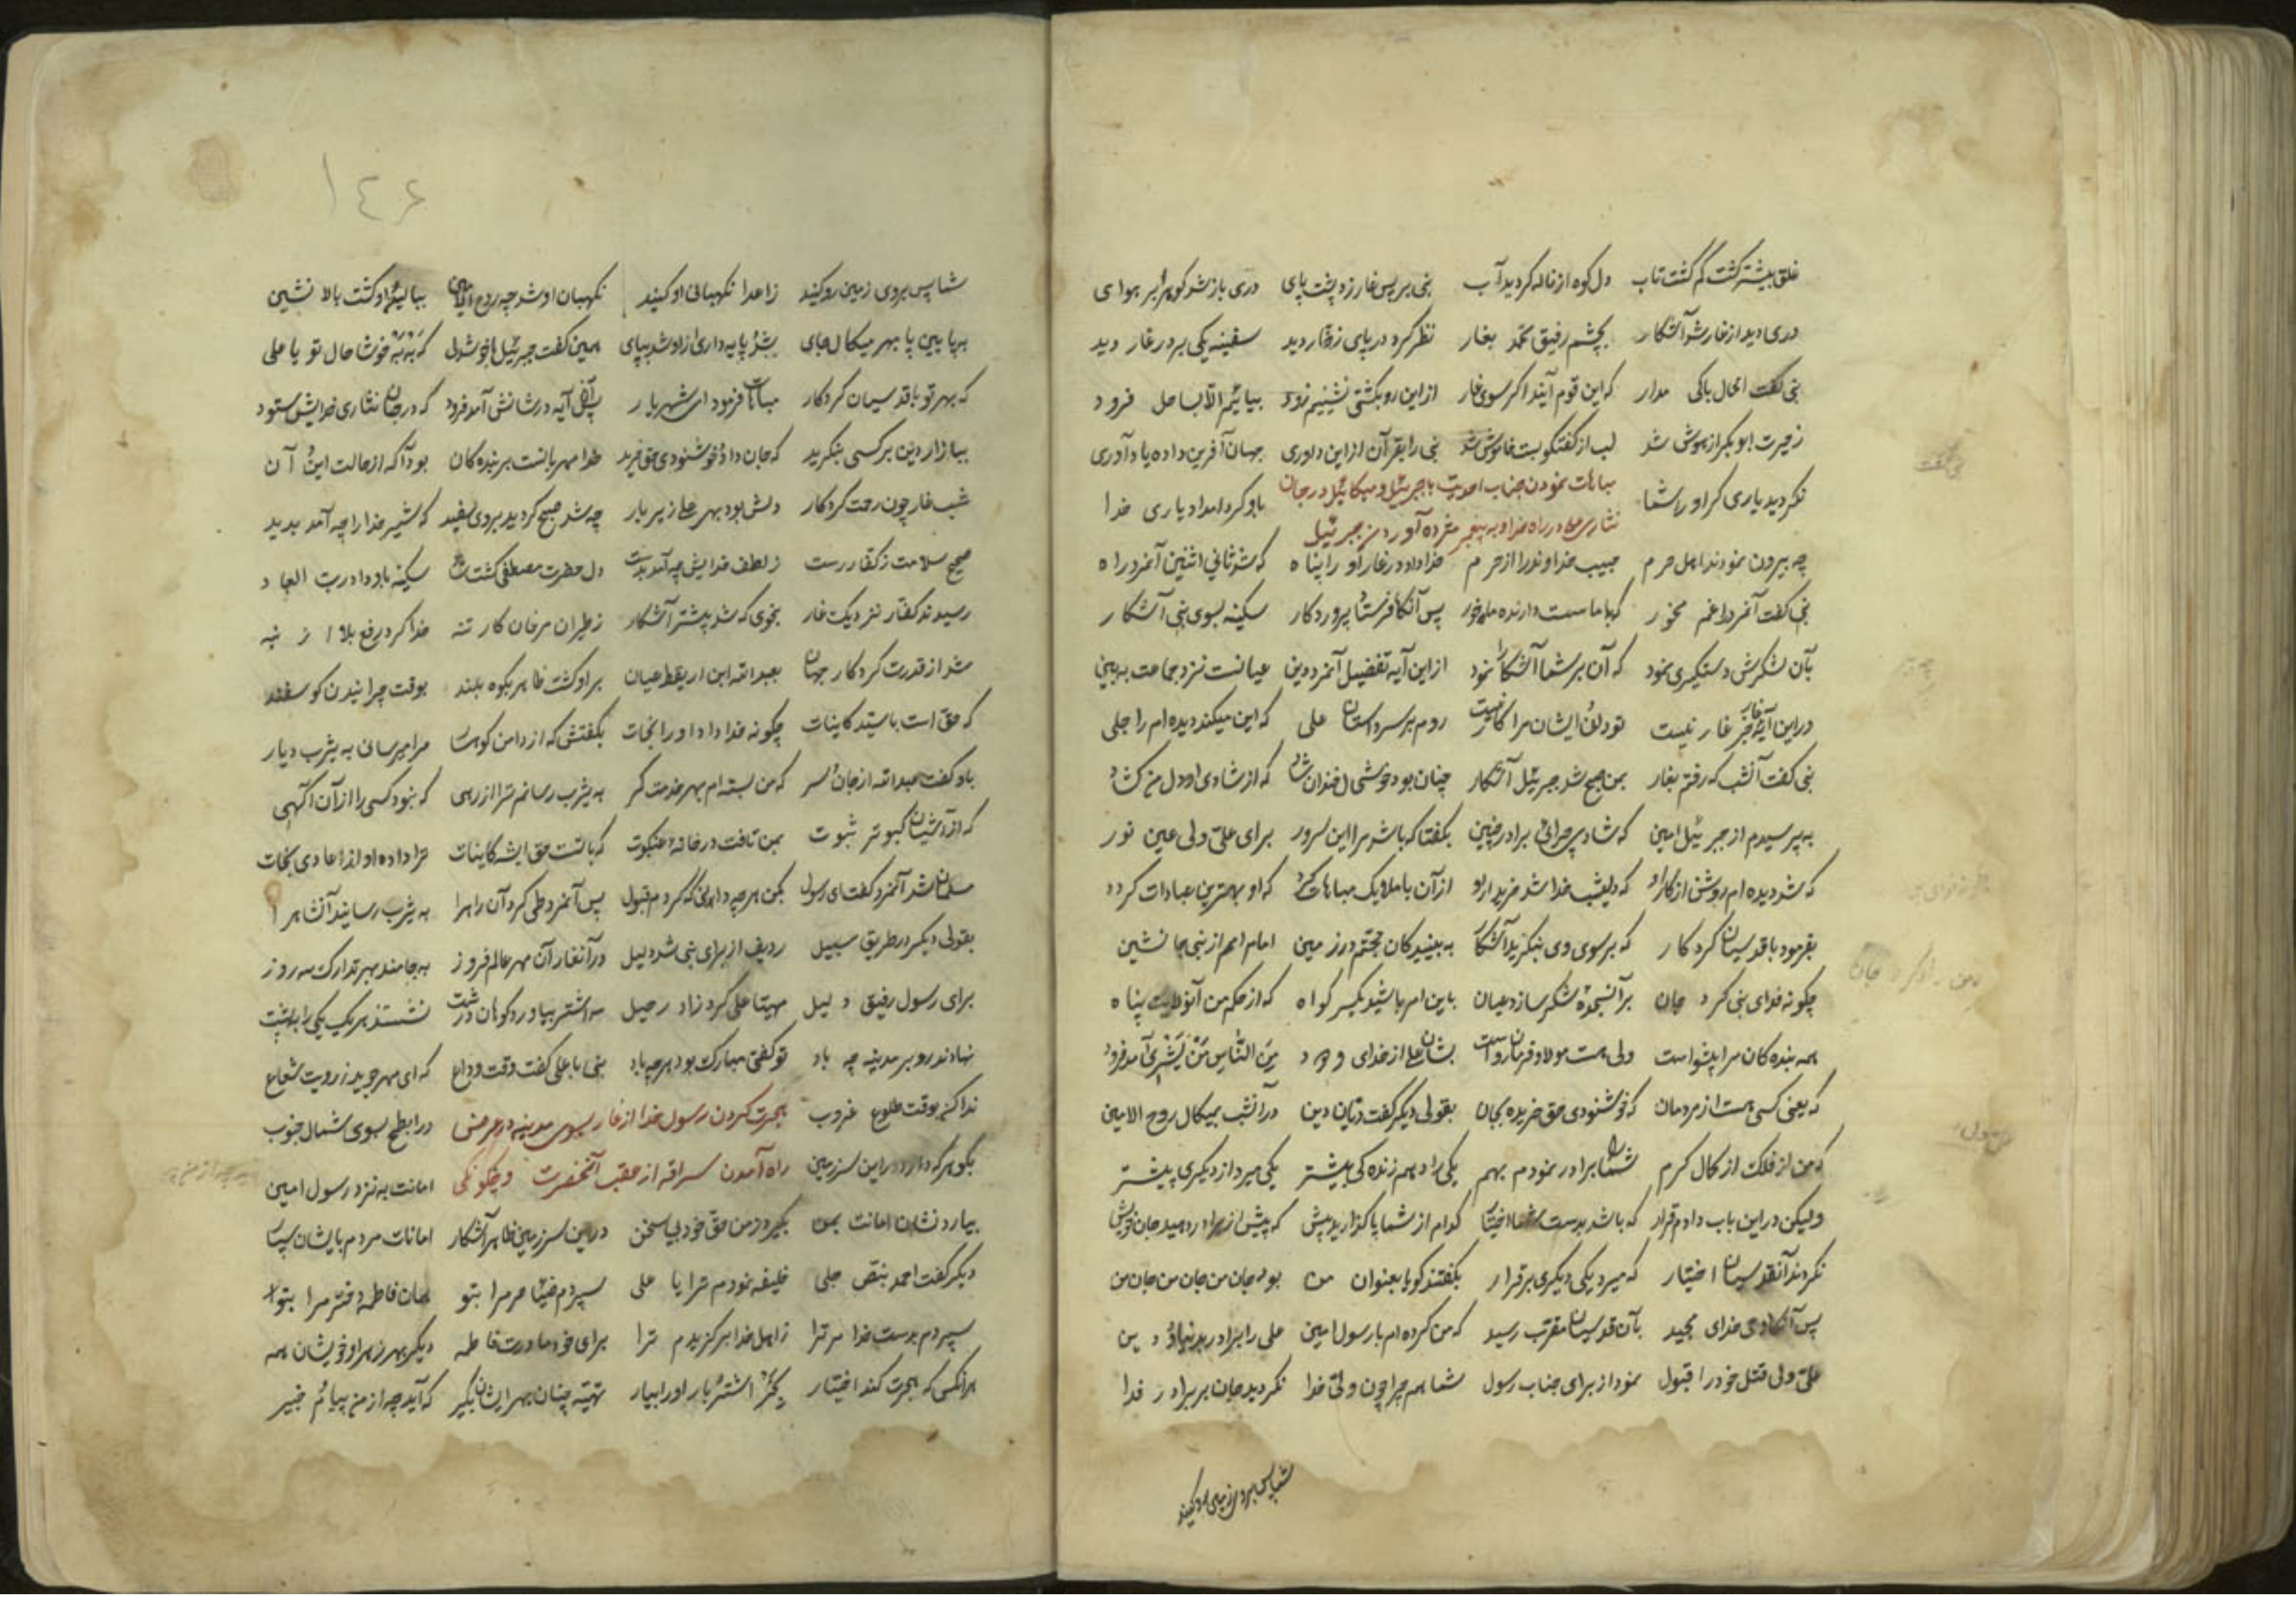 قلق بیشتر کشت کم کشت تاب دل کوه از ناله کردید آب نبی بر پس غار زد پشت پای دری باز شد کوهر بر هوای
دری دید از غار شد آشکار بچشم رفیق محمد بغار نظر کرد دریای زخار دید سفینه یکی بر در غار دید
نبی کفت الحال باکی مدار که این قوم آیند اکر سوی غار از این رو بکشتی نشینیم زود بیائیم الآ بساحل فرود
ز حیرت ابو بکر از هوش شد لب از کفتکو بست خاموش شد نبی را بقرآن از این داوری جهان آفرین داده یاد آوری
نکردید یاری کر او را شما مباهات نمودن جناب احدیت با جبرئیل و میکائیل در جان باو کرد امداد یاری خدا
نثاری علی در راه خدا و به پیغمبر مژده آوردن جبرئیل
چه بیرون نمودند اهل حرم حبیب خداوند را از حرم خدا داد در غار او را پناه که شد ثانی اثنین آنمرد راه
نبی کفت آنمرد را غم مخور که با ماست دارنده پس آنکا فرستاد پروردکار سکینه بسوی نبی آشکار
بآن لشکرش دستکیری نمود که آن بر شما آشکارا نمود از این آیه تفضیل آنمرد دین عیانست نزد جماعت ببین
در این آیه جز غار نیست روم بر سر داستان علی که این میکند دیده ام را جلی
نبی کفت آنشب که رفتم بغار بمن صبح شد جبرئیل آشکار چنان بود خوشحال خندان شاد که از شادی او دل من کشاد
به پرسیدم از جبرئیل امین که شاد چرائی برادر چنین بکفتا که باشد مرا این سرور برای علی ولی عین نور
که شد دیده ام روشن از کار او که دیشب خدا شد خریدار او از آن با ملایک مباهات کرد که او بهترین عبادات کرد
بفرمود با قدسیان کردکار که بر سوی وی بنکرید آشکار به بینید کان حجتم در زمین امام امم از نبی جانشین
چکونه فدای نبی کرد جان بر آنسجده شکر سازد عیان باین امر باشید یکسر کواه که از حکم من
همه بنده کان مرا پیشواست ولی هست مولا و فرمان رواست بشان علی از خدای ودود مِنَ النّاسِ مَنْ یَشْرِی آمد فرود
که یعنی کسی هست از مردمان که خوشنودی حق خریده بجان بقولی دیکر کفت دنیان دین در آنشب بمیکال روح الامین
که من از فلک از کمال کرم شما را برادر نمودم بهم یکی را دهم زنده کی بیشتر یکی میرد از دیکری پیشتر
ولیکن در این باب دادم قرار که باشد بدست شما اختیار کدام از شما پا کذارید پیش که پیش از برادر دهید جان خویش
نکردند آنقدسیان اختیار که میرد یکی دیکری برقرار بکفتند کویا بعنوان من بود جان من جان من جان من
پس آنکا خدای مجید بآن قدسیان مقرب رسید که من کرده ام با رسول امین علی را برادر بدنیا و دین
علی ولی قتل خود را قبول نمود از برای جناب رسول شما هم چرا چون ولی خدا نکردید جان بر برادر فدا
شما پس بروی زمین رو کنید
۱۴۶
شما پس بروی زمین رو کنید ز اعدا نکهبانی او کنید نکهبان او شد چه روح الامین ببالین او کشت بالا نشین
به پایین پا بهر میکال جای بشد پایه داری از او شد بپای همین کفت جبرئیل با خوشدلی که بَه بَه خوشا حال تو یا علی
که بهر تو با قدسیان کردکار مباهات فرمود ای شهریار پس آن آیه در شانش آمد فرود که در جان نثاری خدایش ستود
ببازار دین بر کسی بنکرید که جان داد و خوشنودی حق خرید خدا مهربانست بر بنده کان بود آکه از حالت این و آن
شب غار چون رحمت کردکار دلش بود بهر علی زیر بار چه شد صبح کردید بروی سفید که شیر خدا را چه آمد پدید
صحیح سلامت ز کفار رست ز لطف خدایش چه آمد بدست دل حضرت مصطفی کشت شاد سکینه باو داد رب العباد
رسیدند کفار نزدیک غار بنحوی که شد پیشتر آشکار ز طیران مرغان کار تنه خدا کرد رفع بلا از
شد از قدرت کردکار جهان بعبد الله ابن اریقط عیان بر او کشت ظاهر بکوه بلند بوقت چرانیدن کوسفند
که حق است با سید کاینات چکونه خدا داد او را نجات بکفتش که از دامن کوهسار مرا میرسانی به یثرب دیار
باو کفت عبد الله از جان و سر که من بسته ام بهر خدمت کمر به یثرب رسانم ترا از رهی که نبود کسی را از آن آکهی
که از آشیان کبوتر ثبوت بمن تافت در خانه عنکبوت که بالست حق ایشه کاینات ترا داده او از اعادی نجات
مسلمان شد آنمرد کفت ای رسول بکن هر چه دانی که کردم قبول پس آنمرد طی کرد آن راه را به یثرب رسانید آنشاه را
بقولی دیکر در طریق سبیل ردیف از برای نبی شد دلیل در آنغار آن مهر عالم فروز به جا ماند بهر تدارک سه روز
برای رسول رفیق دلیل مهیا علی کرد زاد رحیل سه اشتر بیاورد کوهان درشت نشستند هر یک یکی را به پشت
نهادند رو بر مدینه چه باد تو کفتی مبارک بود هر چه باد نبی با علی کفت وقت وداع که ای مهر جوید ز رویت شعاع
ندا کن بوقت طلوع غروب هجرت کردن رسول خدا از غار بسوی مدینه در عرض در ابطح بسوی شمال جنوب
بکو هر که دارد در این سرزمین راه آمدن سراقه از عقب آنحضرت و چکونکی امانت به نزد رسول امین
بیارد نشان امانت بمن بکیرد ز من حق خود بی سخن در این سرزمین ظاهر آشکار امانات مردم بایشان سپار
دیکر کفت احمد بنص جلی خلیفه نمودم ترا یا علی سپردم مرا بتو همان فاطمه دختر مرا بتو
سپردم بدست خدا مر ترا ز اهل خدا برکزیدم ترا برای خود مادرت فاطمه دیکر بهر زهرا و خویشان همه
هر آنکس که هجرت کند اختیار بخر اشتر بار او را بیار تهیه چنان بهر ایشان بکیر که آید چه از من پیام خبیر